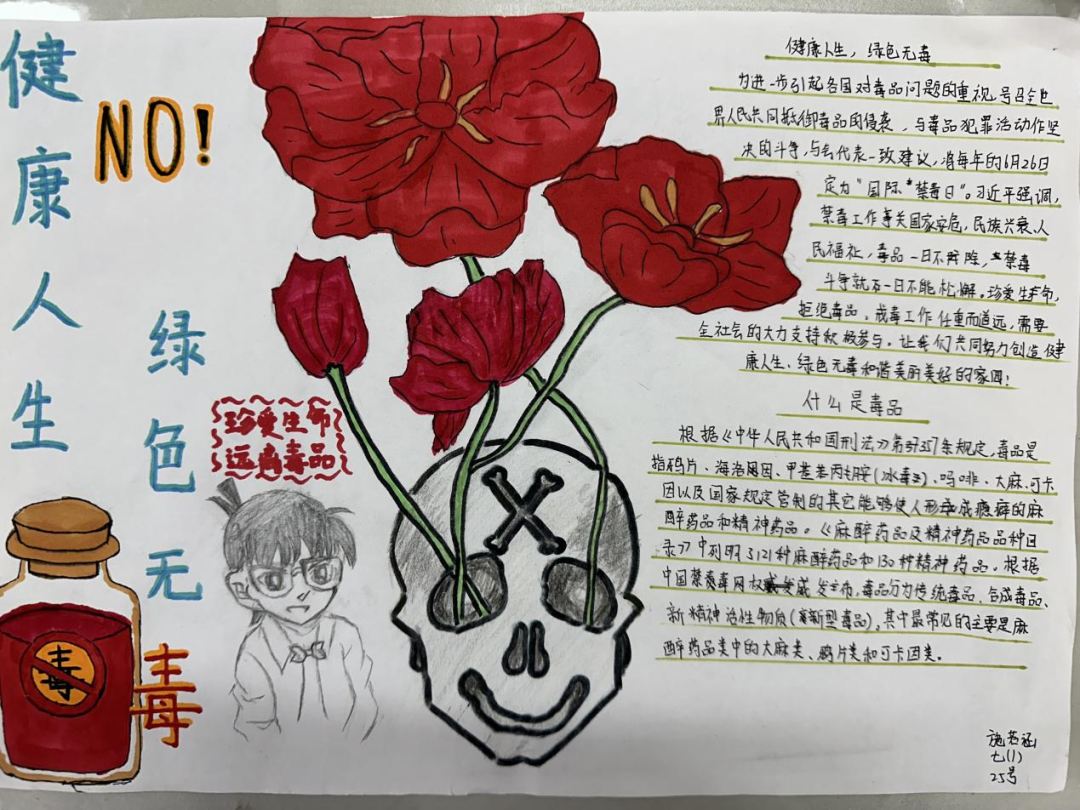 健康人生
绿色无毒
NO!
珍爱生命
远离毒品
毒
健康人生，绿色无毒
为进一步引起各国对毒品问题的重视，号召全世
界人民共同抵御毒品的侵袭，与毒品犯罪活动作坚
决的斗争，与会代表一致建议，将每年的6月26日
定为“国际禁毒日”。习近平强调，
禁毒工作事关国家安危，民族兴衰、人
民福祉，毒品一日不除，禁毒
斗争就一日不能松懈。珍爱生命，
拒绝毒品，戒毒工作任重而道远，需要
全社会的大力支持积极参与。让我们共同努力创造健
康人生、绿色无毒和谐美丽美好的家园！
什么是毒品
根据《中华人民共和国刑法》第357条规定，毒品是
指鸦片、海洛因、甲基苯丙胺（冰毒）、吗啡、大麻、可卡
因以及国家规定管制的其它能够使人形成瘾癖的麻
醉药品和精神药品。《麻醉药品及精神药品品种目
录》中列明了121种麻醉药品和130种精神药品。根据
中国禁毒网权威发布，毒品分为传统毒品、合成毒品、
新精神活性物质（新型毒品），其中最常见的主要是麻
醉药品类中的大麻类、鸦片类和可卡因类。
施若涵
七(1)
25号